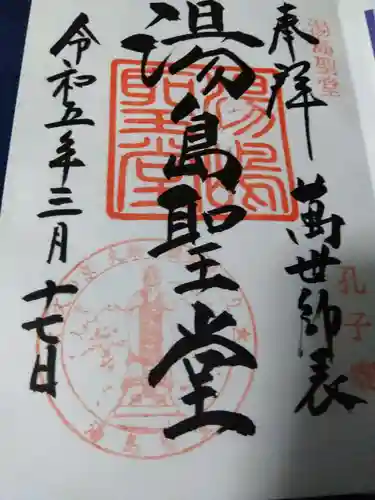 湯島聖堂
奉拝
萬世師表
孔子
湯島聖堂
湯島聖堂
令和五年三月十七日